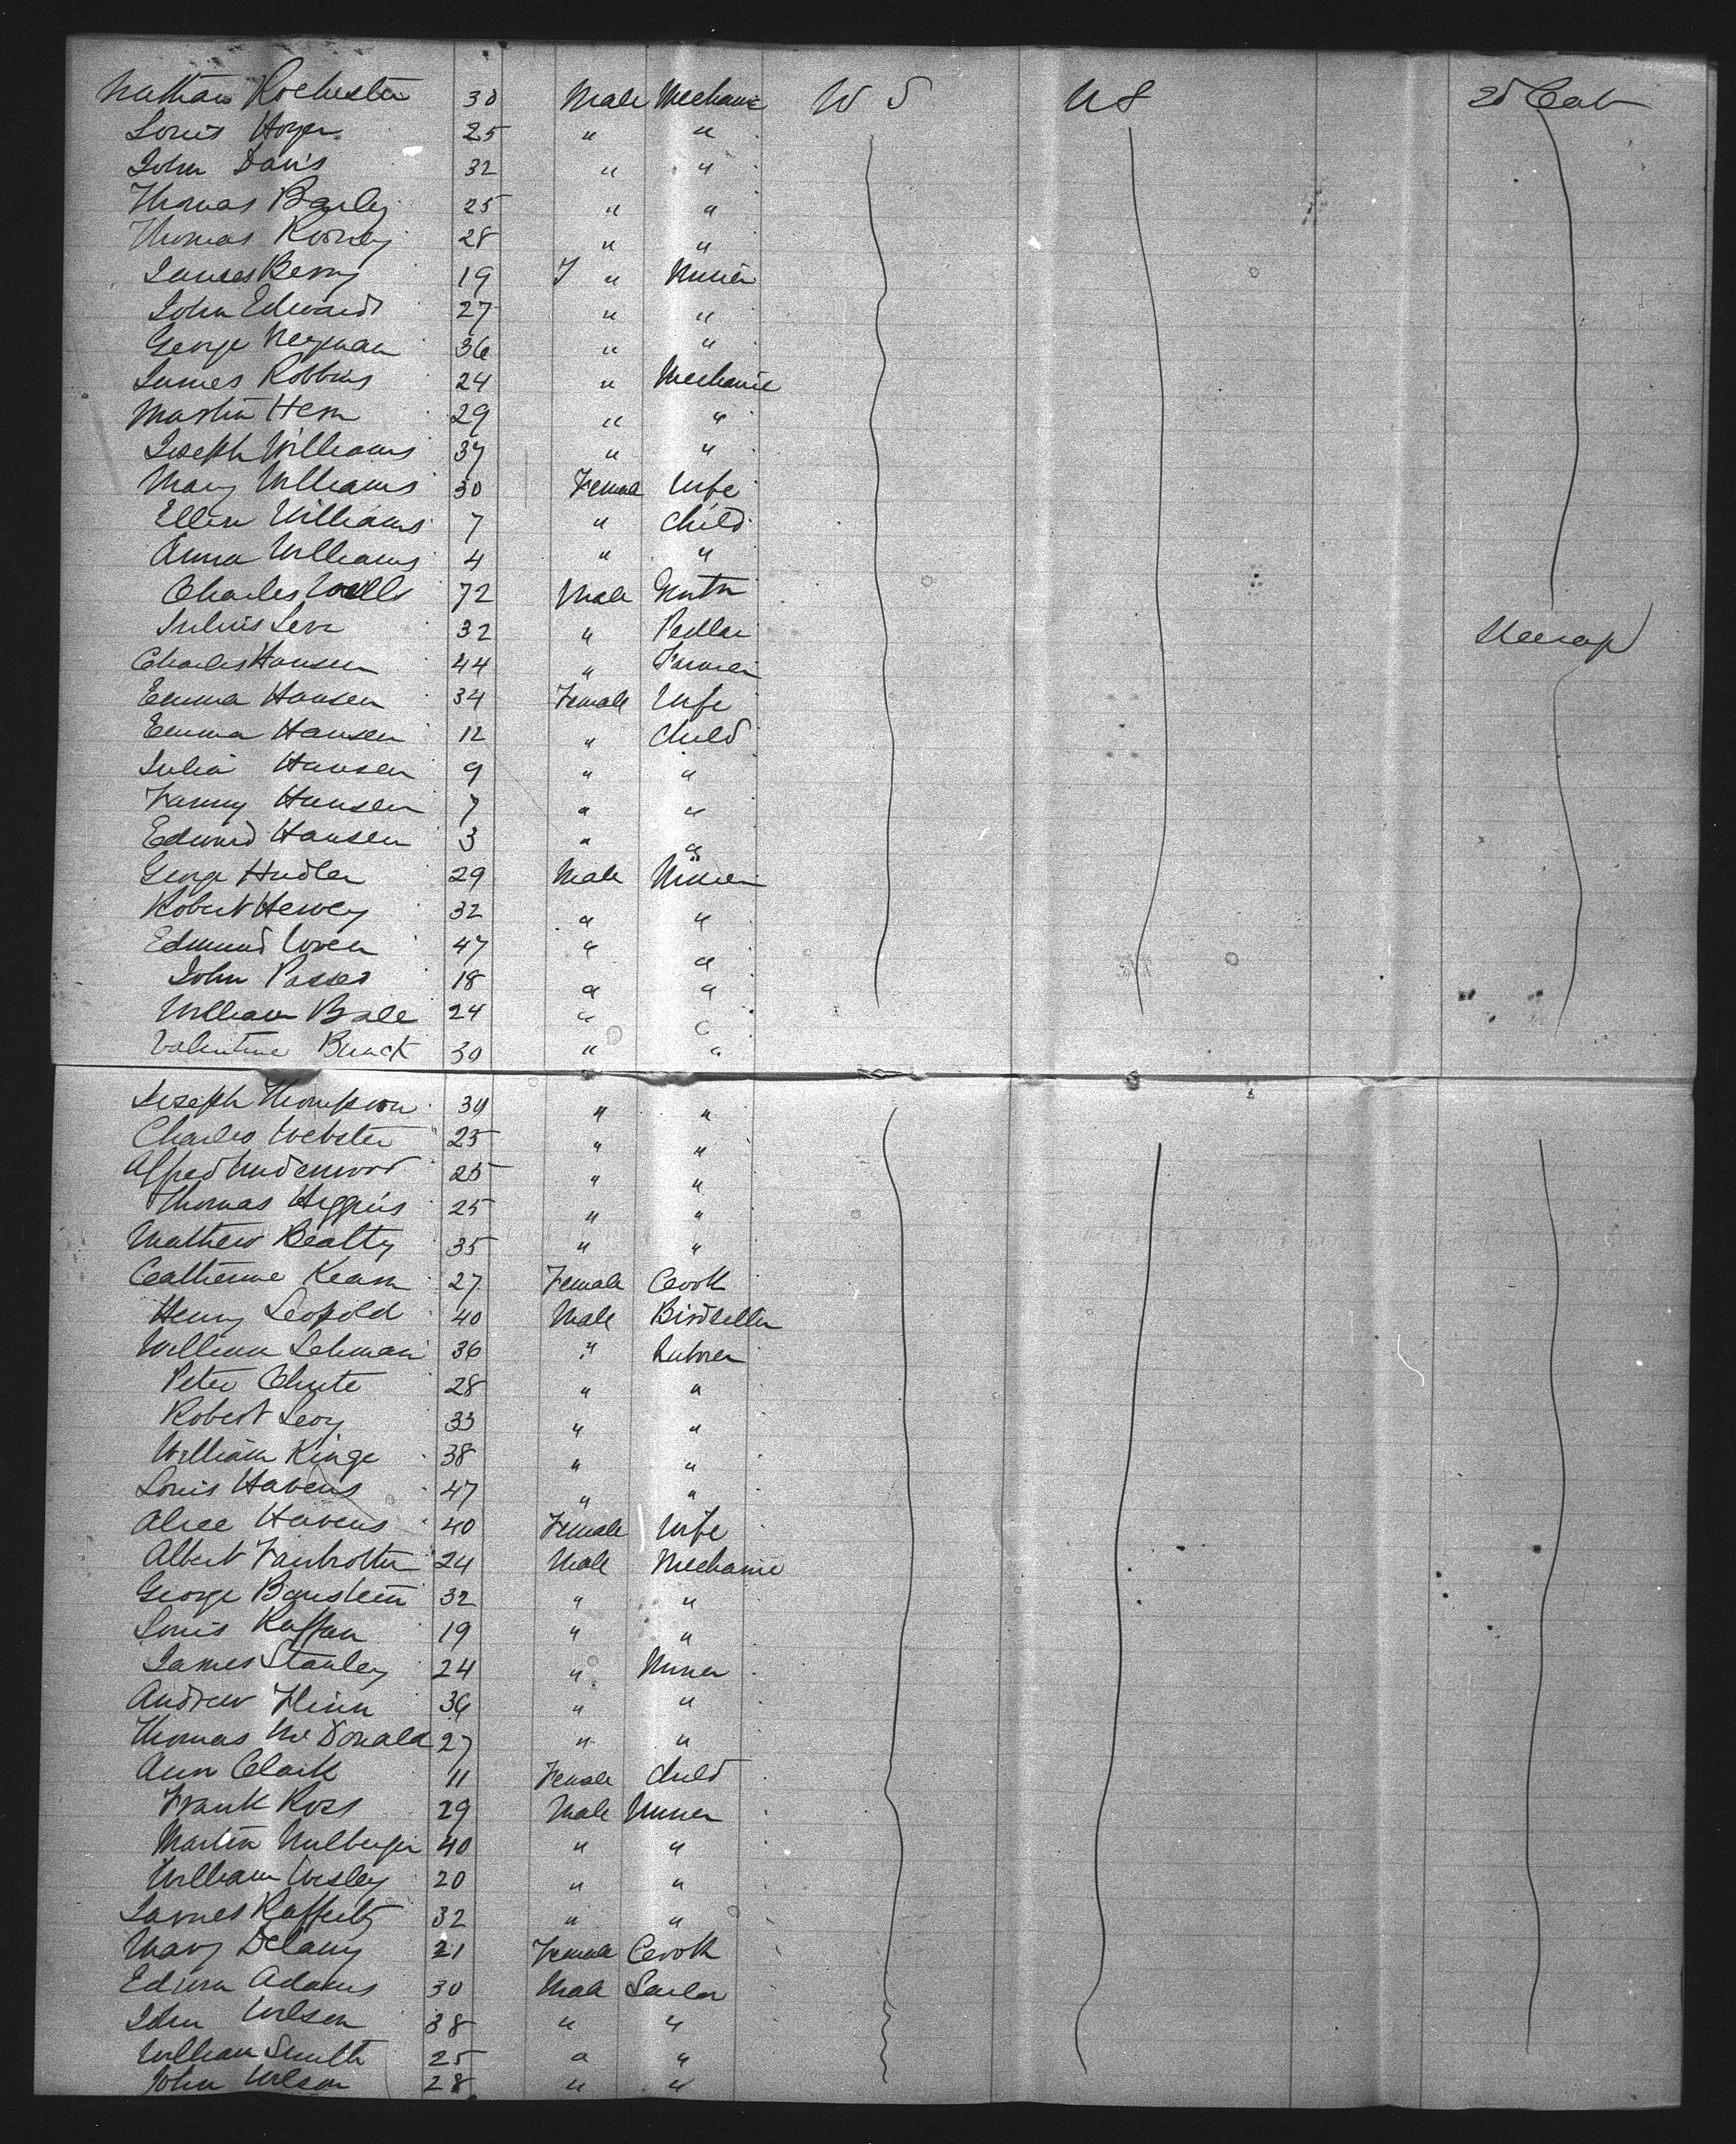 Nathan Rochester 30 Male Mechanic W S U S 2d Cab
Louis 25 " "
John Davis 32 " "
Thomas 25 " "
Thomas Rooney 28 " "
James Berry 19 " Miner
John Edwards 27 " "
George 36 " "
James Robbins 24 " Mechanic
Martin Hern 29 " "
Joseph Williams 37 " "
Mary Williams 30 Female Wife
Ellen Williams 7 " Child
Anna Williams 4 " "
Charles Wells 72 Male
Julius 32 " Pedlar
Steerage
Charles Hansen 44 " Farmer
Emma Hansen 34 Female Wife
Emma Hansen 12 " Child
Julia Hansen 9 " "
Fanny Hansen 7 " "
Edward Hansen 3 " "
George 29 Male Miner
Robert Hervey 32 " "
Edmund 47 " "
John 18 " "
William Bale 24 " "
Valentine 30 " "
Joseph Thompson 30 " "
Charles Webster 25 " "
Alfred Underwood 25 " "
Thomas Higgins 25 " "
Mathew Beatty 35 " "
Catherine Kearn 27 Female Cook
Henry Leopold 40 Male Birdseller
William Lehman 36 "
Peter Chute 28 " "
Robert Levy 33 " "
William Kinge 38 " "
Louis Havens 47 " "
Alice Havens 40 Female Wife
Albert 24 Male Mechanic
George 32 " "
Louis 19 " "
James Stanley 24 " Miner
Andrew Flinn 36 " "
Thomas McDonald 27 " "
Ann Clark 11 Female Child
Frank Ross 29 Male Miner
Martin 40 " "
William Wesley 20 " "
James Rafferty 32 " "
Mary Delany 21 Female Cook
Edwin Adams 30 Male Sailor
John Wilson 38 " "
William Smith 25 " "
John Wilson 28 " "